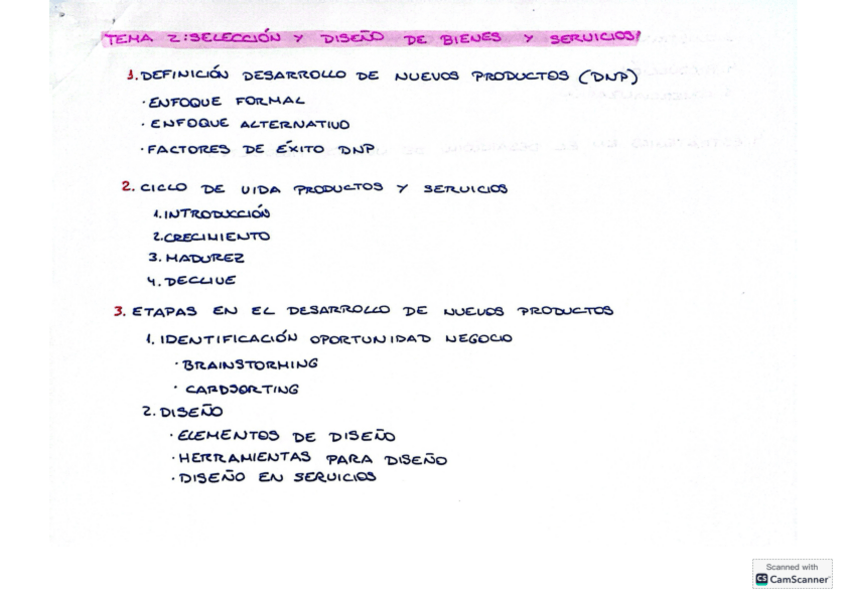 TEMA 2: SELECCIÓN Y DISEÑO DE BIENES Y SERVICIOS
1. DEFINICIÓN DESARROLLO DE NUEVOS PRODUCTOS (DNP)
· ENFOQUE FORMAL
· ENFOQUE ALTERNATIVO
· FACTORES DE ÉXITO DNP
2. CICLO DE VIDA PRODUCTOS Y SERVICIOS
1. INTRODUCCIÓN
2. CRECIMIENTO
3. MADUREZ
4. DECLIVE
3. ETAPAS EN EL DESARROLLO DE NUEVOS PRODUCTOS
1. IDENTIFICACIÓN OPORTUNIDAD NEGOCIO
· BRAINSTORMING
· CARDSORTING
2. DISEÑO
· ELEMENTOS DE DISEÑO
· HERRAMIENTAS PARA DISEÑO
· DISEÑO EN SERVICIOS
Scanned with
CS CamScanner